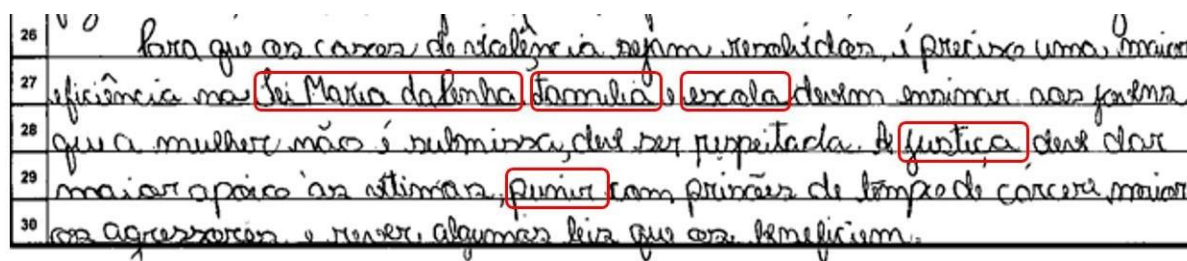 26 Para que os casos de violência sejam resolvidos, é preciso uma maior
27 eficiência na Lei Maria da Penha, família e escola devem ensinar aos jovens
28 que a mulher não é submissa, deve ser respeitada. A justiça deve dar
29 maior apoio às vítimas, punir com prisões de tempo de cárcere maior
30 os agressores e rever algumas leis que os beneficiem.